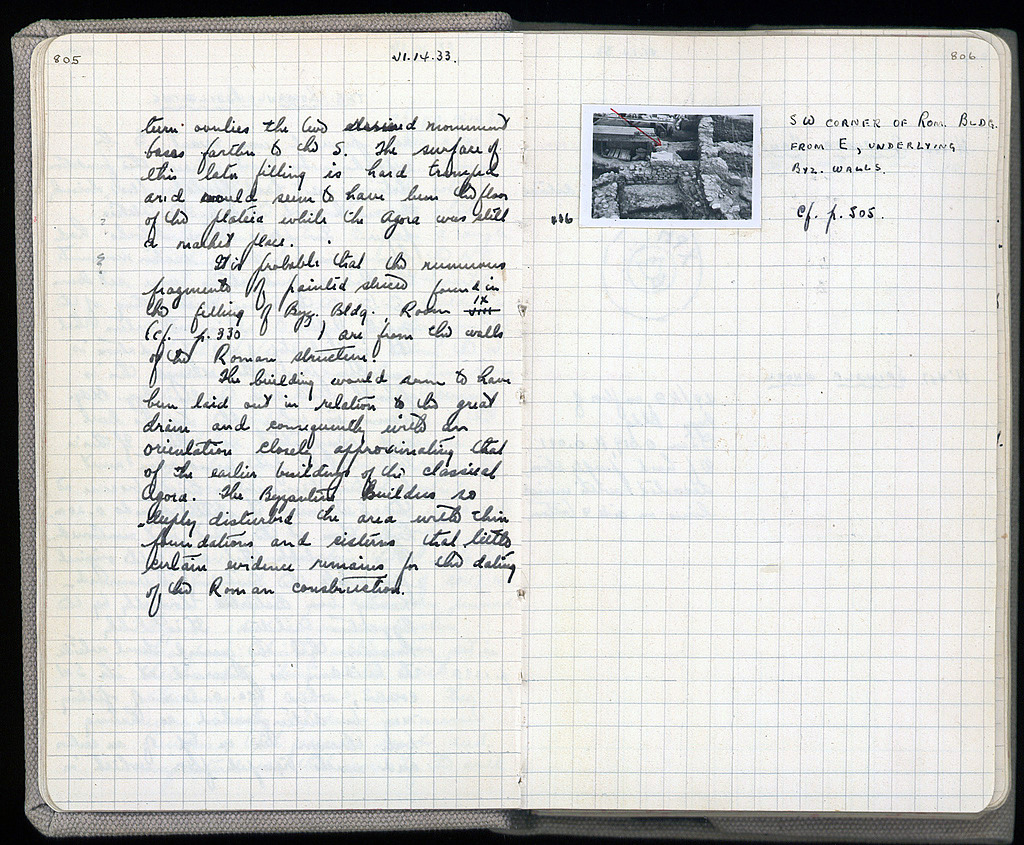 805
VI.14.33.
turn overlies the two                monument
bases farther to the S. The surface of
this later filling is hard tramped
and would seem to have been the floor
of the plateia while the Agora was still
a market place.
It is probable that the numerous
fragments of painted stucco found in
the filling of Byz. Bldg. Room IX
(cf. p. 330 ) are from the walls
of the Roman structure.
The building would seem to have
been laid out in relation to the great
drain and consequently with an
orientation closely approximating that
of the earlier buildings of the classical
Agora. The Byzantine builders so
deeply disturbed the area with their
foundations and cisterns that little
certain evidence remains for the dating
of the Roman construction.
806
SW CORNER OF ROM. BLDG.
FROM E, UNDERLYING
BYZ. WALLS.
Cf. p. 505.